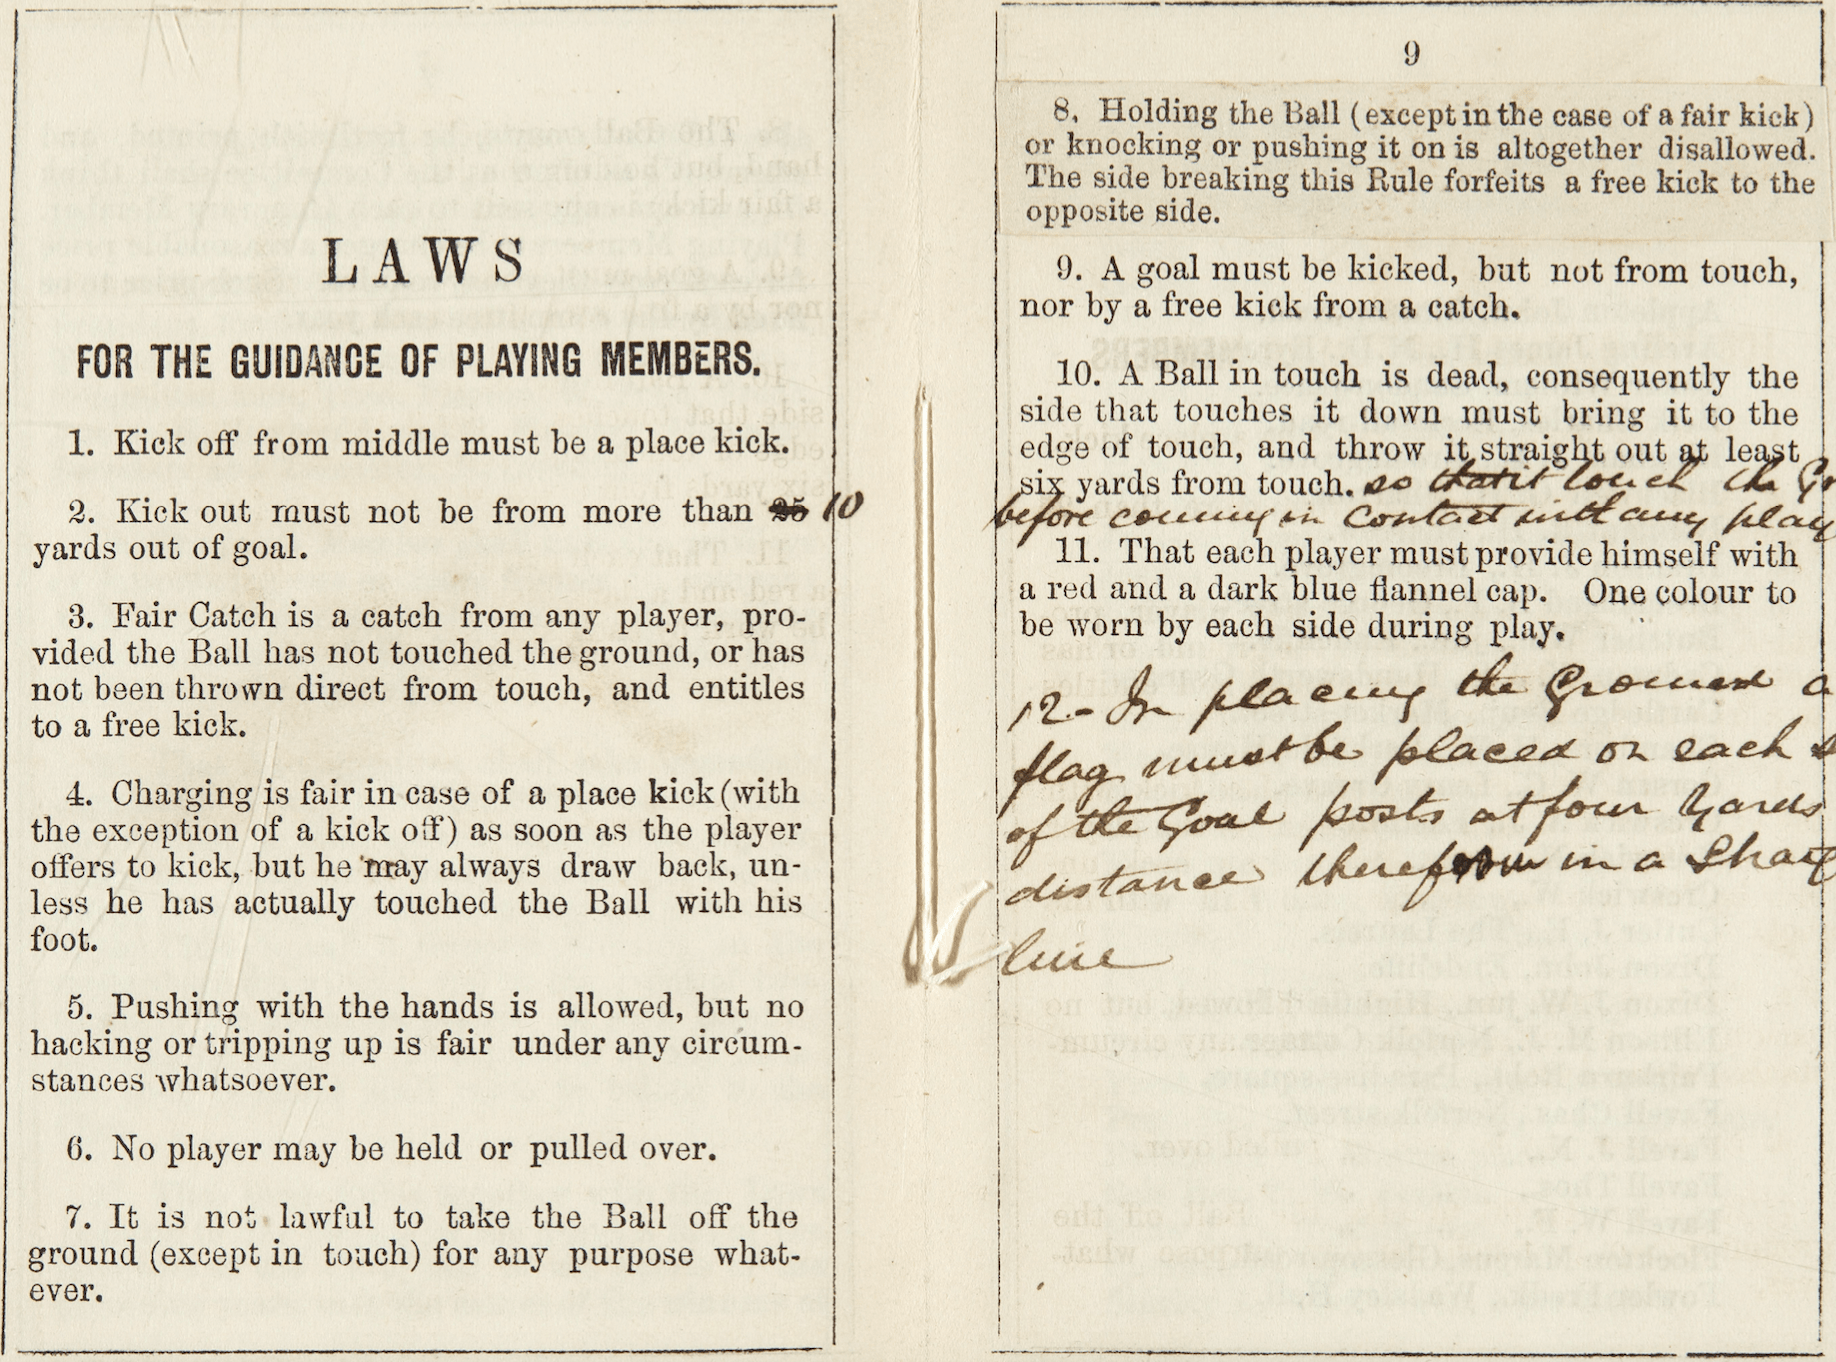 LAWS
FOR THE GUIDANCE OF PLAYING MEMBERS.
1. Kick off from middle must be a place kick.
2. Kick out must not be from more than 25 10
yards out of goal.
3. Fair Catch is a catch from any player, pro-
vided the Ball has not touched the ground, or has
not been thrown direct from touch, and entitles
to a free kick.
4. Charging is fair in case of a place kick (with
the exception of a kick off) as soon as the player
offers to kick, but he may always draw back, un-
less he has actually touched the Ball with his
foot.
5. Pushing with the hands is allowed, but no
hacking or tripping up is fair under any circum-
stances whatsoever.
6. No player may be held or pulled over.
7. It is not lawful to take the Ball off the
ground (except in touch) for any purpose what-
ever.
9
8. Holding the Ball (except in the case of a fair kick)
or knocking or pushing it on is altogether disallowed.
The side breaking this Rule forfeits a free kick to the
opposite side.
9. A goal must be kicked, but not from touch,
nor by a free kick from a catch.
10. A Ball in touch is dead, consequently the
side that touches it down must bring it to the
edge of touch, and throw it straight out at least
six yards from touch. so that it touch the Gr
before coming in contact with any play
11. That each player must provide himself with
a red and a dark blue flannel cap. One colour to
be worn by each side during play.
12- In placing the Ground a
flag must be placed on each
of the Goal posts at four yards
distance therefrom in a
line